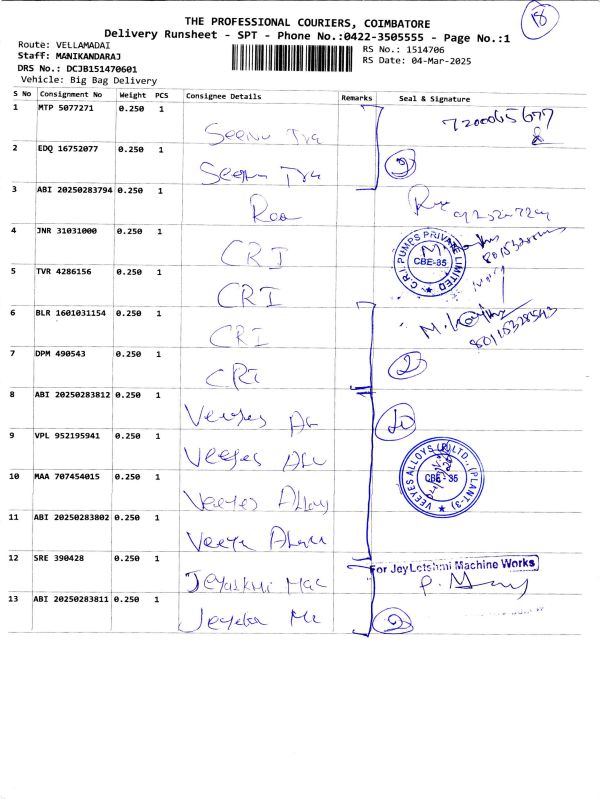 18
THE PROFESSIONAL COURIERS, COIMBATORE
Delivery Runsheet - SPT - Phone No.:0422-3505555 - Page No.:1
Route: VELLAMADAI
RS No.: 1514706
Staff: MANIKANDARAJ
RS Date: 04-Mar-2025
DRS No.: DCJB151470601
Vehicle: Big Bag Delivery
S No Consignment No Weight PCS Consignee Details Remarks Seal & Signature
1 MTP 5077271 0.250 1 Seenu Tra
2 EDQ 16752077 0.250 1 Seenu Tra
3 ABI 20250283794 0.250 1
4 JNR 31031000 0.250 1 CRI
C.R.I PUMPS PRIVATE LIMITED
CBE-35
5 TVR 4286156 0.250 1 CRI
6 BLR 1601031154 0.250 1 CRI
7 DPM 490543 0.250 1 CRI
2
8 ABI 20250283812 0.250 1 Veeyes
9 VPL 952195941 0.250 1 Veeyes
VEEYES ALLOYS (P) LTD., (PLANT-3)
CBE - 35
10 MAA 707454015 0.250 1 Veeyes Alloy
11 ABI 20250283802 0.250 1
12 SRE 390428 0.250 1
For Jey Letshmi Machine Works
13 ABI 20250283811 0.250 1
2